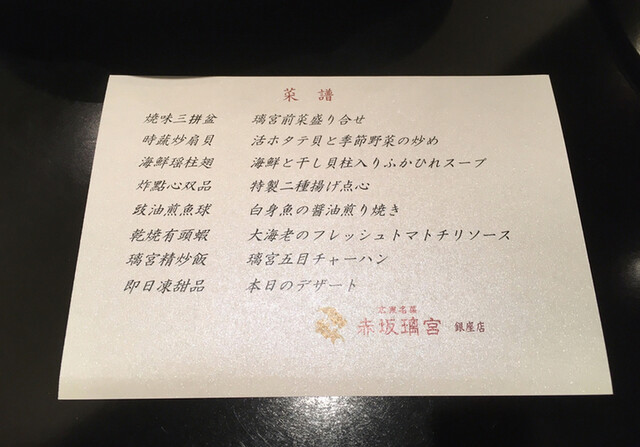 菜譜
燒味三拼盆 璃宮前菜盛り合せ
時蔬炒扇貝 活ホタテ貝と季節野菜の炒め
海鮮瑶柱翅 海鮮と干し貝柱入りふかひれスープ
炸點心双品 特製二種揚げ点心
豉油煎魚球 白身魚の醤油煎り焼き
乾焼有頭蝦 大海老のフレッシュトマトチリソース
璃宮精炒飯 璃宮五目チャーハン
即日凍甜品 本日のデザート
広東名菜
赤坂璃宮 銀座店